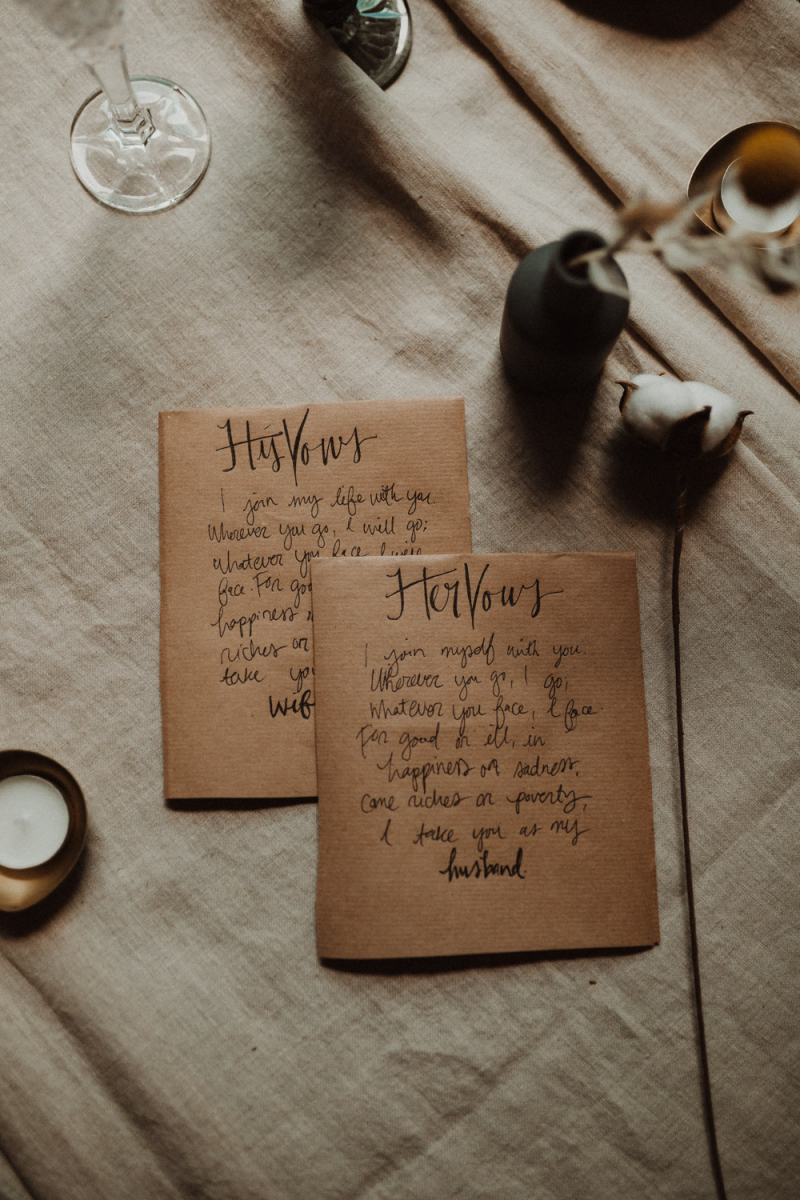 His Vows
I join my life with you
Wherever you go, I will go;
whatever you face I will
face. For goo
happiness
riches or
take you
wife
Her Vows
I join myself with you.
Wherever you go, I go;
Whatever you face, I face.
For good or ill, in
happiness or sadness,
come riches or poverty,
I take you as my
husband.